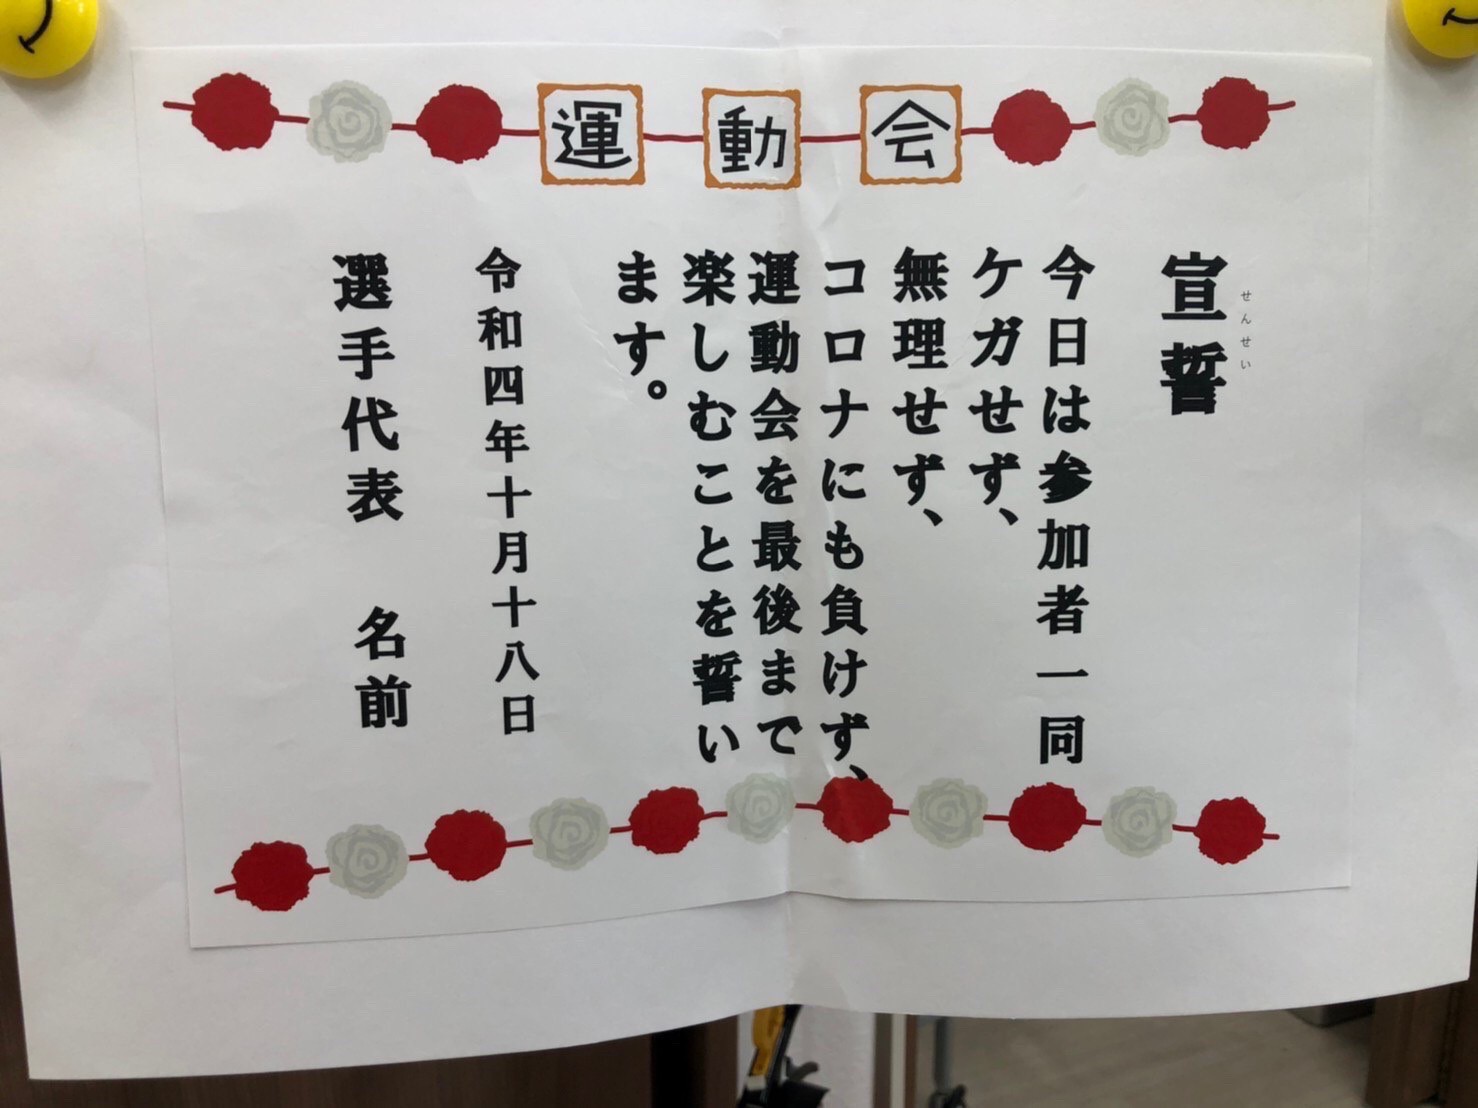 運動会
宣誓
せんせい
今日は参加者一同
ケガせず、
無理せず、
コロナにも負けず、
運動会を最後まで
楽しむことを誓い
ます。
令和四年十月十八日
選手代表 名前